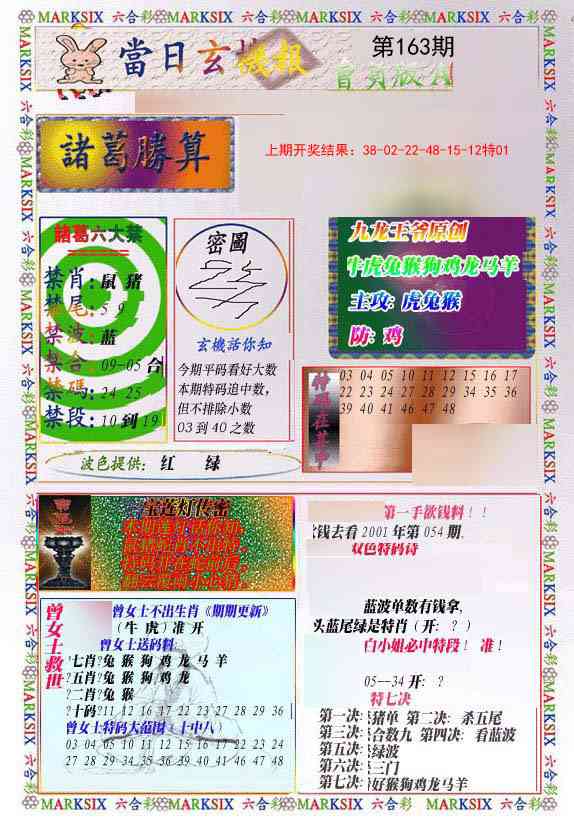 MARKSIX 六合彩 MARKSIX 六合彩 MARKSIX 六合彩 MARKSIX 六合彩
當日玄機報
第163期
諸葛勝算
上期开奖结果：38-02-22-48-15-12特01
諸葛六大禁
禁肖：鼠 猪
禁尾：5 9
禁波：蓝
禁合：09-05 合
禁碼：24 25
禁段：10 到 19
密圖
玄機話你知
今期平码看好大数
本期特码追中数，
但不排除小数
03 到 40 之数
九龙王爷原创
牛虎兔猴狗鸡龙马羊
主攻：虎兔猴
防：鸡
03 04 05 10 11 12 15 16 17
22 23 24 27 28 29 34 35 36
39 40 41 46 47 48
波色提供： 红 绿
宝莲灯传密
第一手欲钱料！！
欲钱去看 2001 年第 054 期，
双色特码诗
蓝波单数有钱拿，
头蓝尾绿是特肖（开：？）
白小姐必中特段！ 准！
05--34 开：？
特七决
第一决：猪单 第二决：杀五尾
第三决：合数九 第四决：看蓝波
第五决：绿波
第六决：三门
第七决：好猴狗鸡龙马羊
曾女士救世
曾女士不出生肖《期期更新》
（牛 虎）准 开
曾女士送码料：
?七肖?兔 猴 狗 鸡 龙 马 羊
?五肖?兔 猴 狗 鸡 龙
?二肖?兔 猴
?十码?11 12 16 17 22 23 27 28 29 36
曾女士特码大范围（十中八）
03 04 05 10 11 12 15 16 17 22 23 24
27 28 29 34 35 36 39 40 41 46 47 48
MARKSIX 六合彩 MARKSIX 六合彩 MARKSIX 六合彩 MARKSIX 六合彩